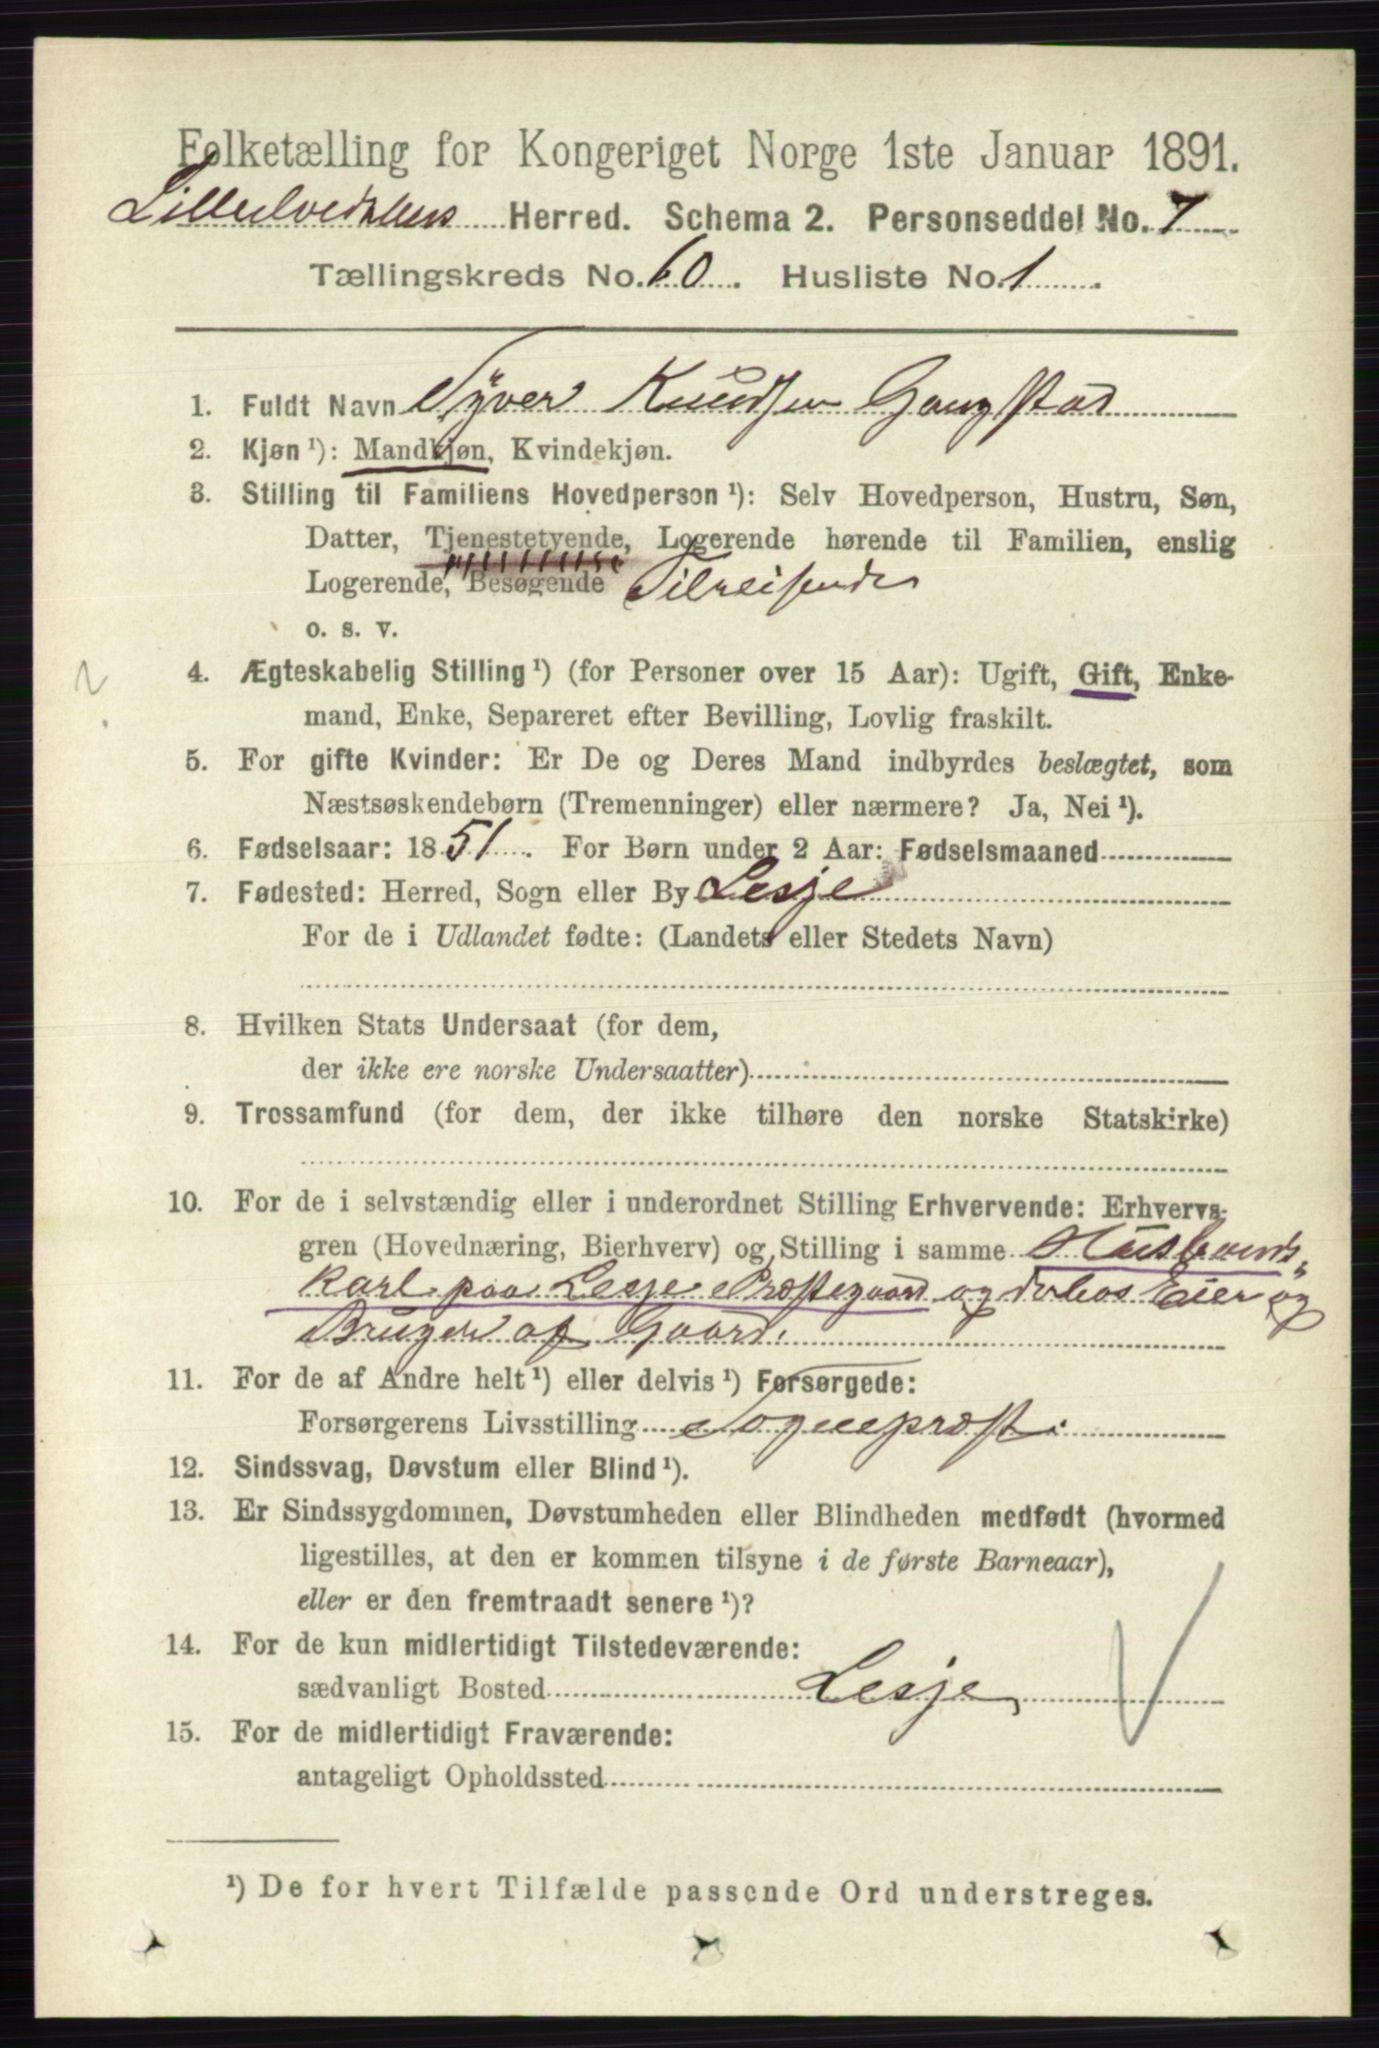 Folketælling for Kongeriget Norge 1ste Januar 1891.
Lilleelvedalens Herred. Schema 2. Personseddel No. 7
Tællingskreds No. 10. Husliste No. 1.
1. Fuldt Navn Syver Knudsen Gangstad
2. Kjøn ¹): Mandkjøn, Kvindekjøn.
3. Stilling til Familiens Hovedperson ¹): Selv Hovedperson, Hustru, Søn,
Datter, Tjenestetyende, Logerende hørende til Familien, enslig
Logerende, Besøgende Tilreisende
o. s. v.
4. Ægteskabelig Stilling ¹) (for Personer over 15 Aar): Ugift, Gift, Enke-
mand, Enke, Separeret efter Bevilling, Lovlig fraskilt.
5. For gifte Kvinder: Er De og Deres Mand indbyrdes beslægtet, som
Næstsøskendebørn (Tremenninger) eller nærmere? Ja, Nei ¹).
6. Fødselsaar: 1851. For Børn under 2 Aar: Fødselsmaaned
7. Fødested: Herred, Sogn eller By Lesje
For de i Udlandet fødte: (Landets eller Stedets Navn)
8. Hvilken Stats Undersaat (for dem,
der ikke ere norske Undersaatter)
9. Trossamfund (for dem, der ikke tilhøre den norske Statskirke)
10. For de i selvstændig eller i underordnet Stilling Erhvervende: Erhvervs-
gren (Hovednæring, Bierhverv) og Stilling i samme Husbonds-
karl paa Lesje Præstegaard og Eier og
Bruger af Gaard.
11. For de af Andre helt ¹) eller delvis ¹) Forsørgede:
Forsørgerens Livsstilling Sognepræst.
12. Sindssvag, Døvstum eller Blind ¹).
13. Er Sindssygdommen, Døvstumheden eller Blindheden medfødt (hvormed
ligestilles, at den er kommen tilsyne i de første Barneaar),
eller er den fremtraadt senere ¹)?
14. For de kun midlertidigt Tilstedeværende:
sædvanligt Bosted Lesje
15. For de midlertidigt Fraværende:
antageligt Opholdssted
¹) De for hvert Tilfælde passende Ord understreges.